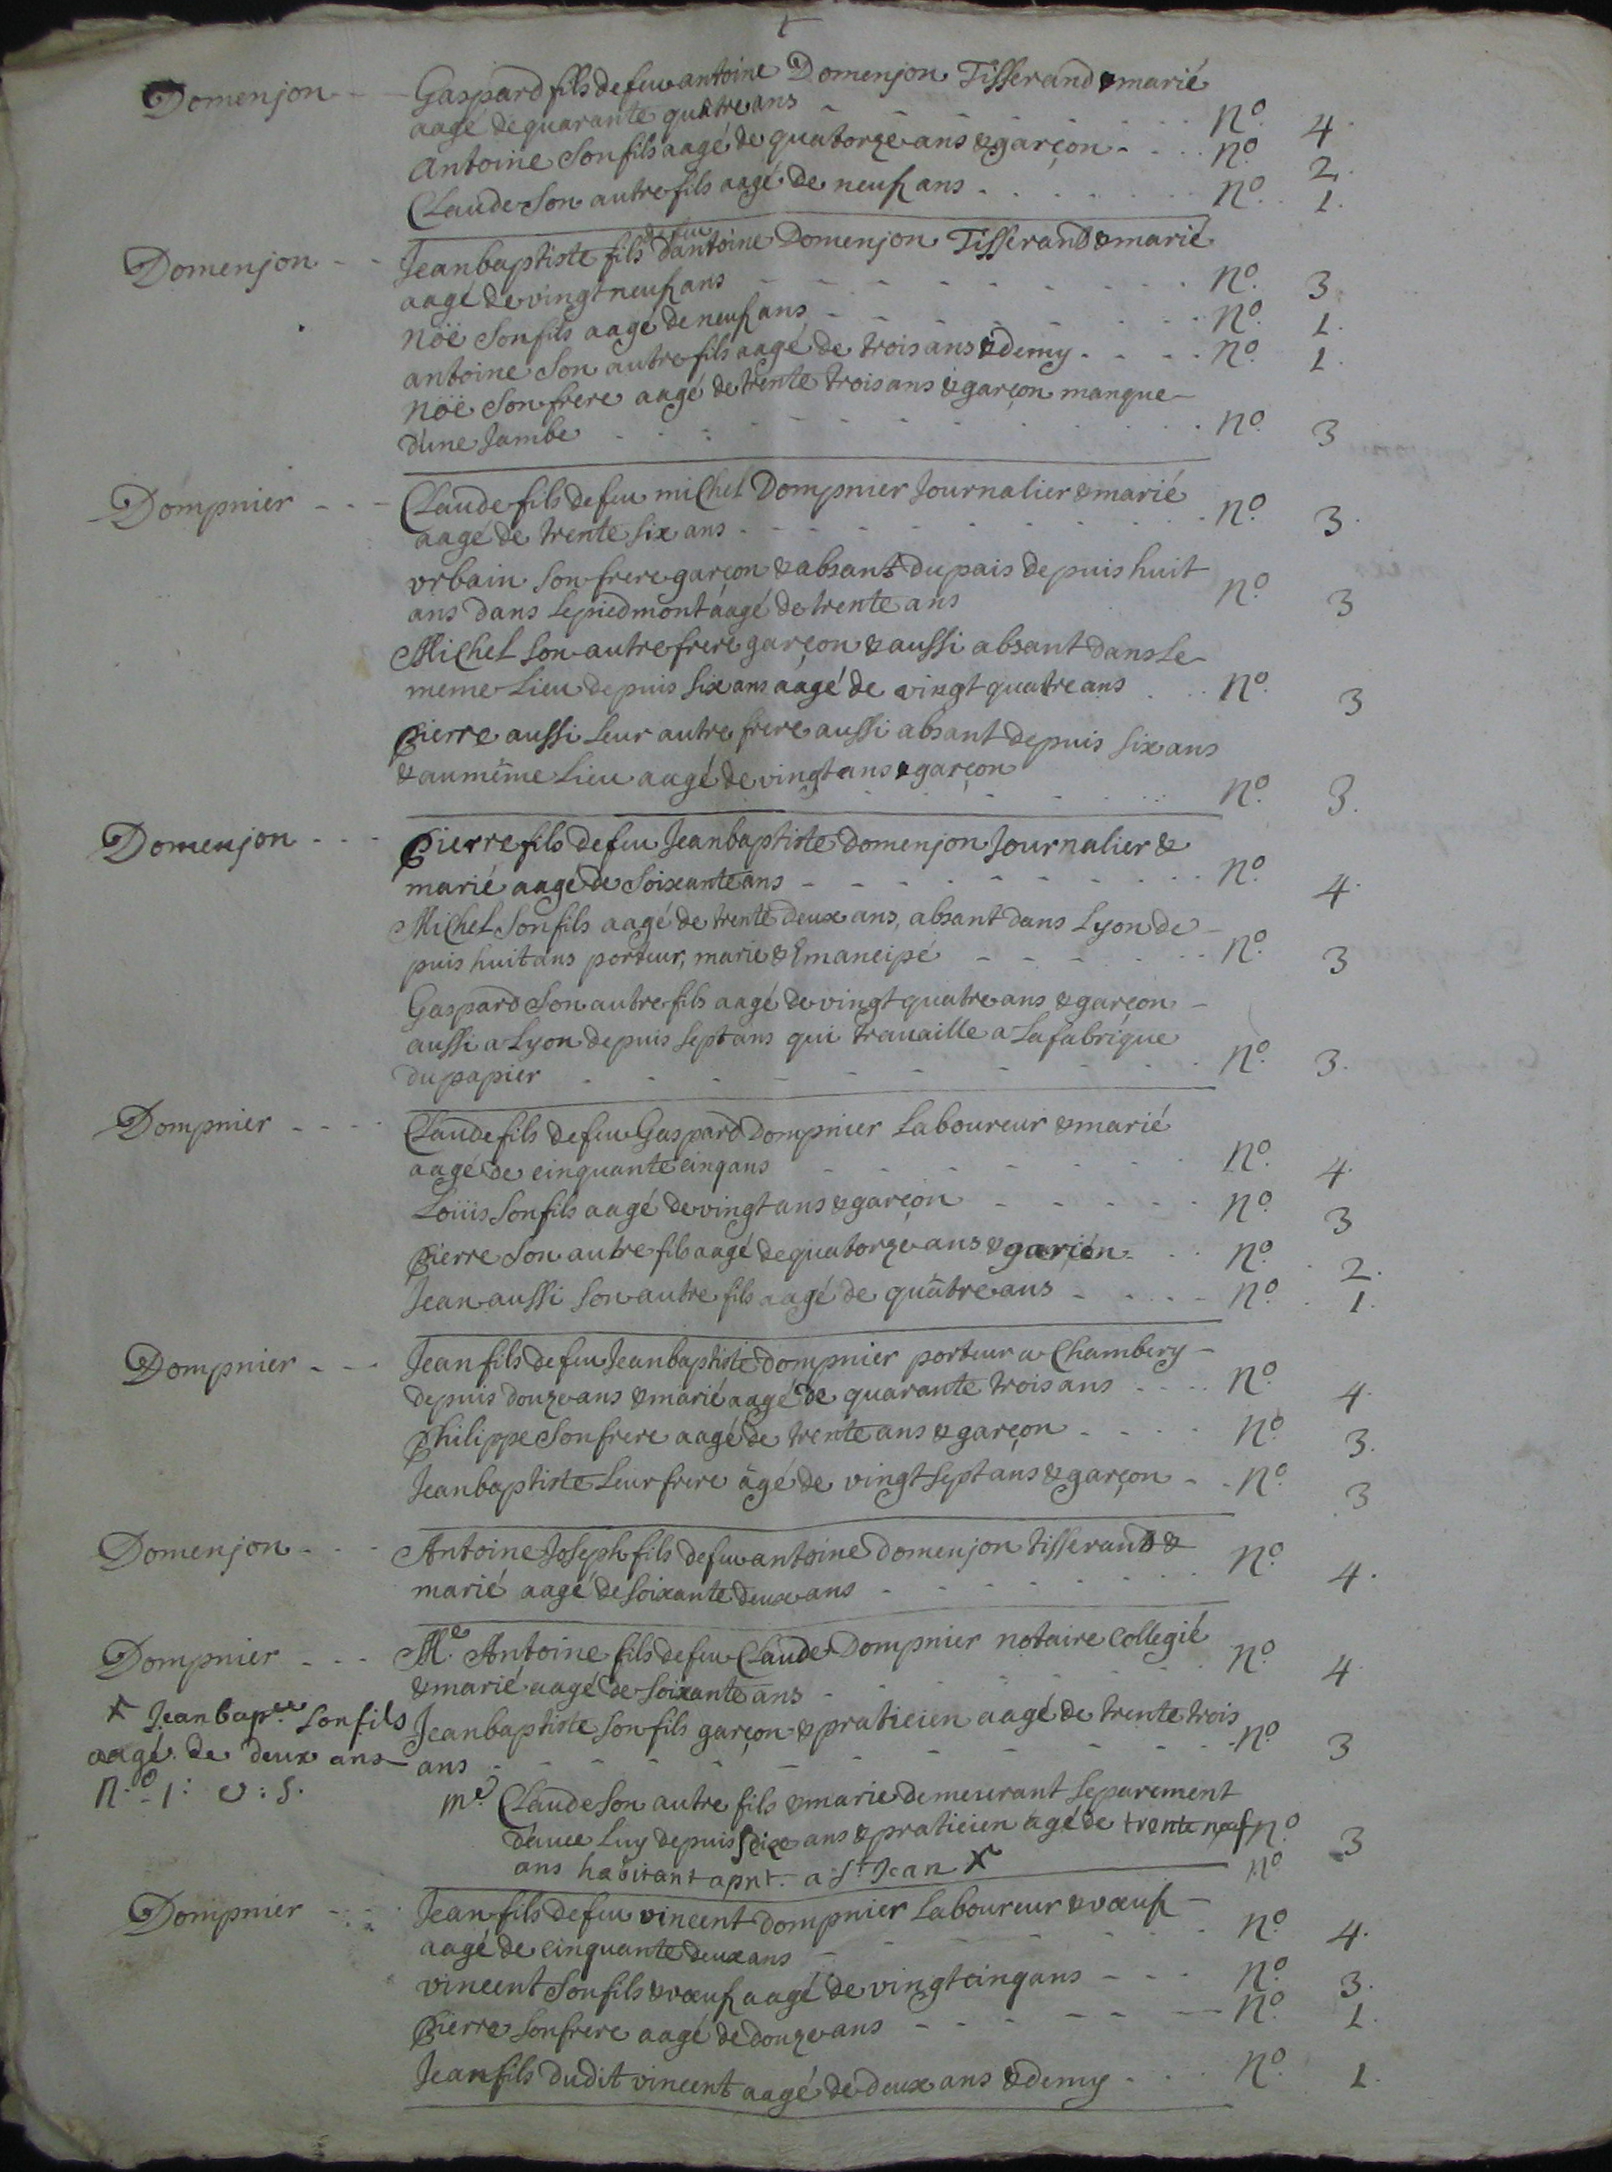 Domenjon - - Gaspard fils de feu antoine Domenjon Tisserand & marié
aagé de quarante quatre ans - - - - - n.º 4.
Antoine son fils aagé de quatorze ans & garçon - . . . n.º 2.
Claude son autre fils aagé de neuf ans . . . . . . n.º. 1.
de feu
Domenjon - - Jeanbaptiste fils dantoine Domenjon Tisserand & marié
aagé de vingt neuf ans - - - - - - n.º. 3
Nöé son fils aagé de neuf ans - - - - - n.º. 1.
antoine son autre fils aagé de trois ans & demy . . . . n.º. 1.
Nöé son frere aagé de trente trois ans & garçon manque
d'une Jambe - - - - - - n.º. 3
Dompnier - - - Claude fils de feu michel Dompnier Journalier & marié
aagé de trente six ans - - - - - - n.º. 3.
vrbain son frere garçon & absant du pais depuis huit
ans dans le piedmont aagé de trente ans n.º. 3
Michel son autre frere garçon & aussi absant dans le
meme Lieu depuis six ans aagé de vingt quatre ans . . . n.º. 3
Pierre aussi leur autre frere aussi absant depuis six ans
& au même Lieu aagé de vingt ans & garçon - - - - n.º. 3.
Domenjon - - - Pierre fils de feu Jeanbaptiste Domenjon Journalier &
marié aagé de soixante ans - - - - - - n.º. 4.
Michel son fils aagé de trente deux ans, absant dans Lyon de
puis huit ans porteur, marié & Emancipé - - - - - n.º. 3
Gaspard son autre fils aagé de vingt quatre ans & garçon -
aussi a Lyon depuis sept ans qui trauaille a la fabrique
du papier - - - - - - n.º. 3.
Dompnier - - - Claude fils de feu Gaspard Dompnier Laboureur & marié
aagé de cinquante cinq ans - - - - - n.º. 4.
Loüis son fils aagé de vingt ans & garçon - - - - - n.º. 3
Pierre son autre fils aagé de quatorze ans & garçon . . . n.º. 2.
Jean aussi son autre fils aagé de quatre ans - - - - n.º. 1.
Dompnier - - - Jean fils de feu Jeanbaptiste Dompnier porteur a Chambery -
depuis douze ans & marié aagé de quarante trois ans . . . . n.º. 4.
Philippe son frere aagé de trente ans & garçon . - . . n.º. 3.
Jeanbaptiste Leur frere âgé de vingt sept ans & garçon - - n.º. 3
Domenjon - - - Antoine Joseph fils de feu antoine Domenjon tisserand &
marié aagé de soixante deux ans - - - - - n.º. 4.
Dompnier - - - M.e Antoine fils de feu Claude Dompnier notaire Collegié
& marié aagé de soixante ans - - - - n.º. 4
Jeanbaptiste son fils garçon & praticien aagé de trente trois
ans - - - - - - n.º. 3
m.e Claude son autre fils & marié demeurant separement
d'auec Luy depuis seize ans & praticien âgé de trente neuf n.º. 3
ans habitant apnt. a S.t Jean X n.º
X Jeanbap.te son fils
aagé de deux ans
n.º 1: v: s.
Dompnier - - - Jean fils de feu vincent Dompnier Laboureur & vœuf -
aagé de cinquante deux ans - - - - - n.º. 4.
vincent son fils & vœuf aagé de vingt cinq ans - - - n.º. 3.
Pierre son frere aagé de douze ans - - - - - n.º. 1.
Jean fils dudit vincent aagé de deux ans & demy . . . n.º. 1.